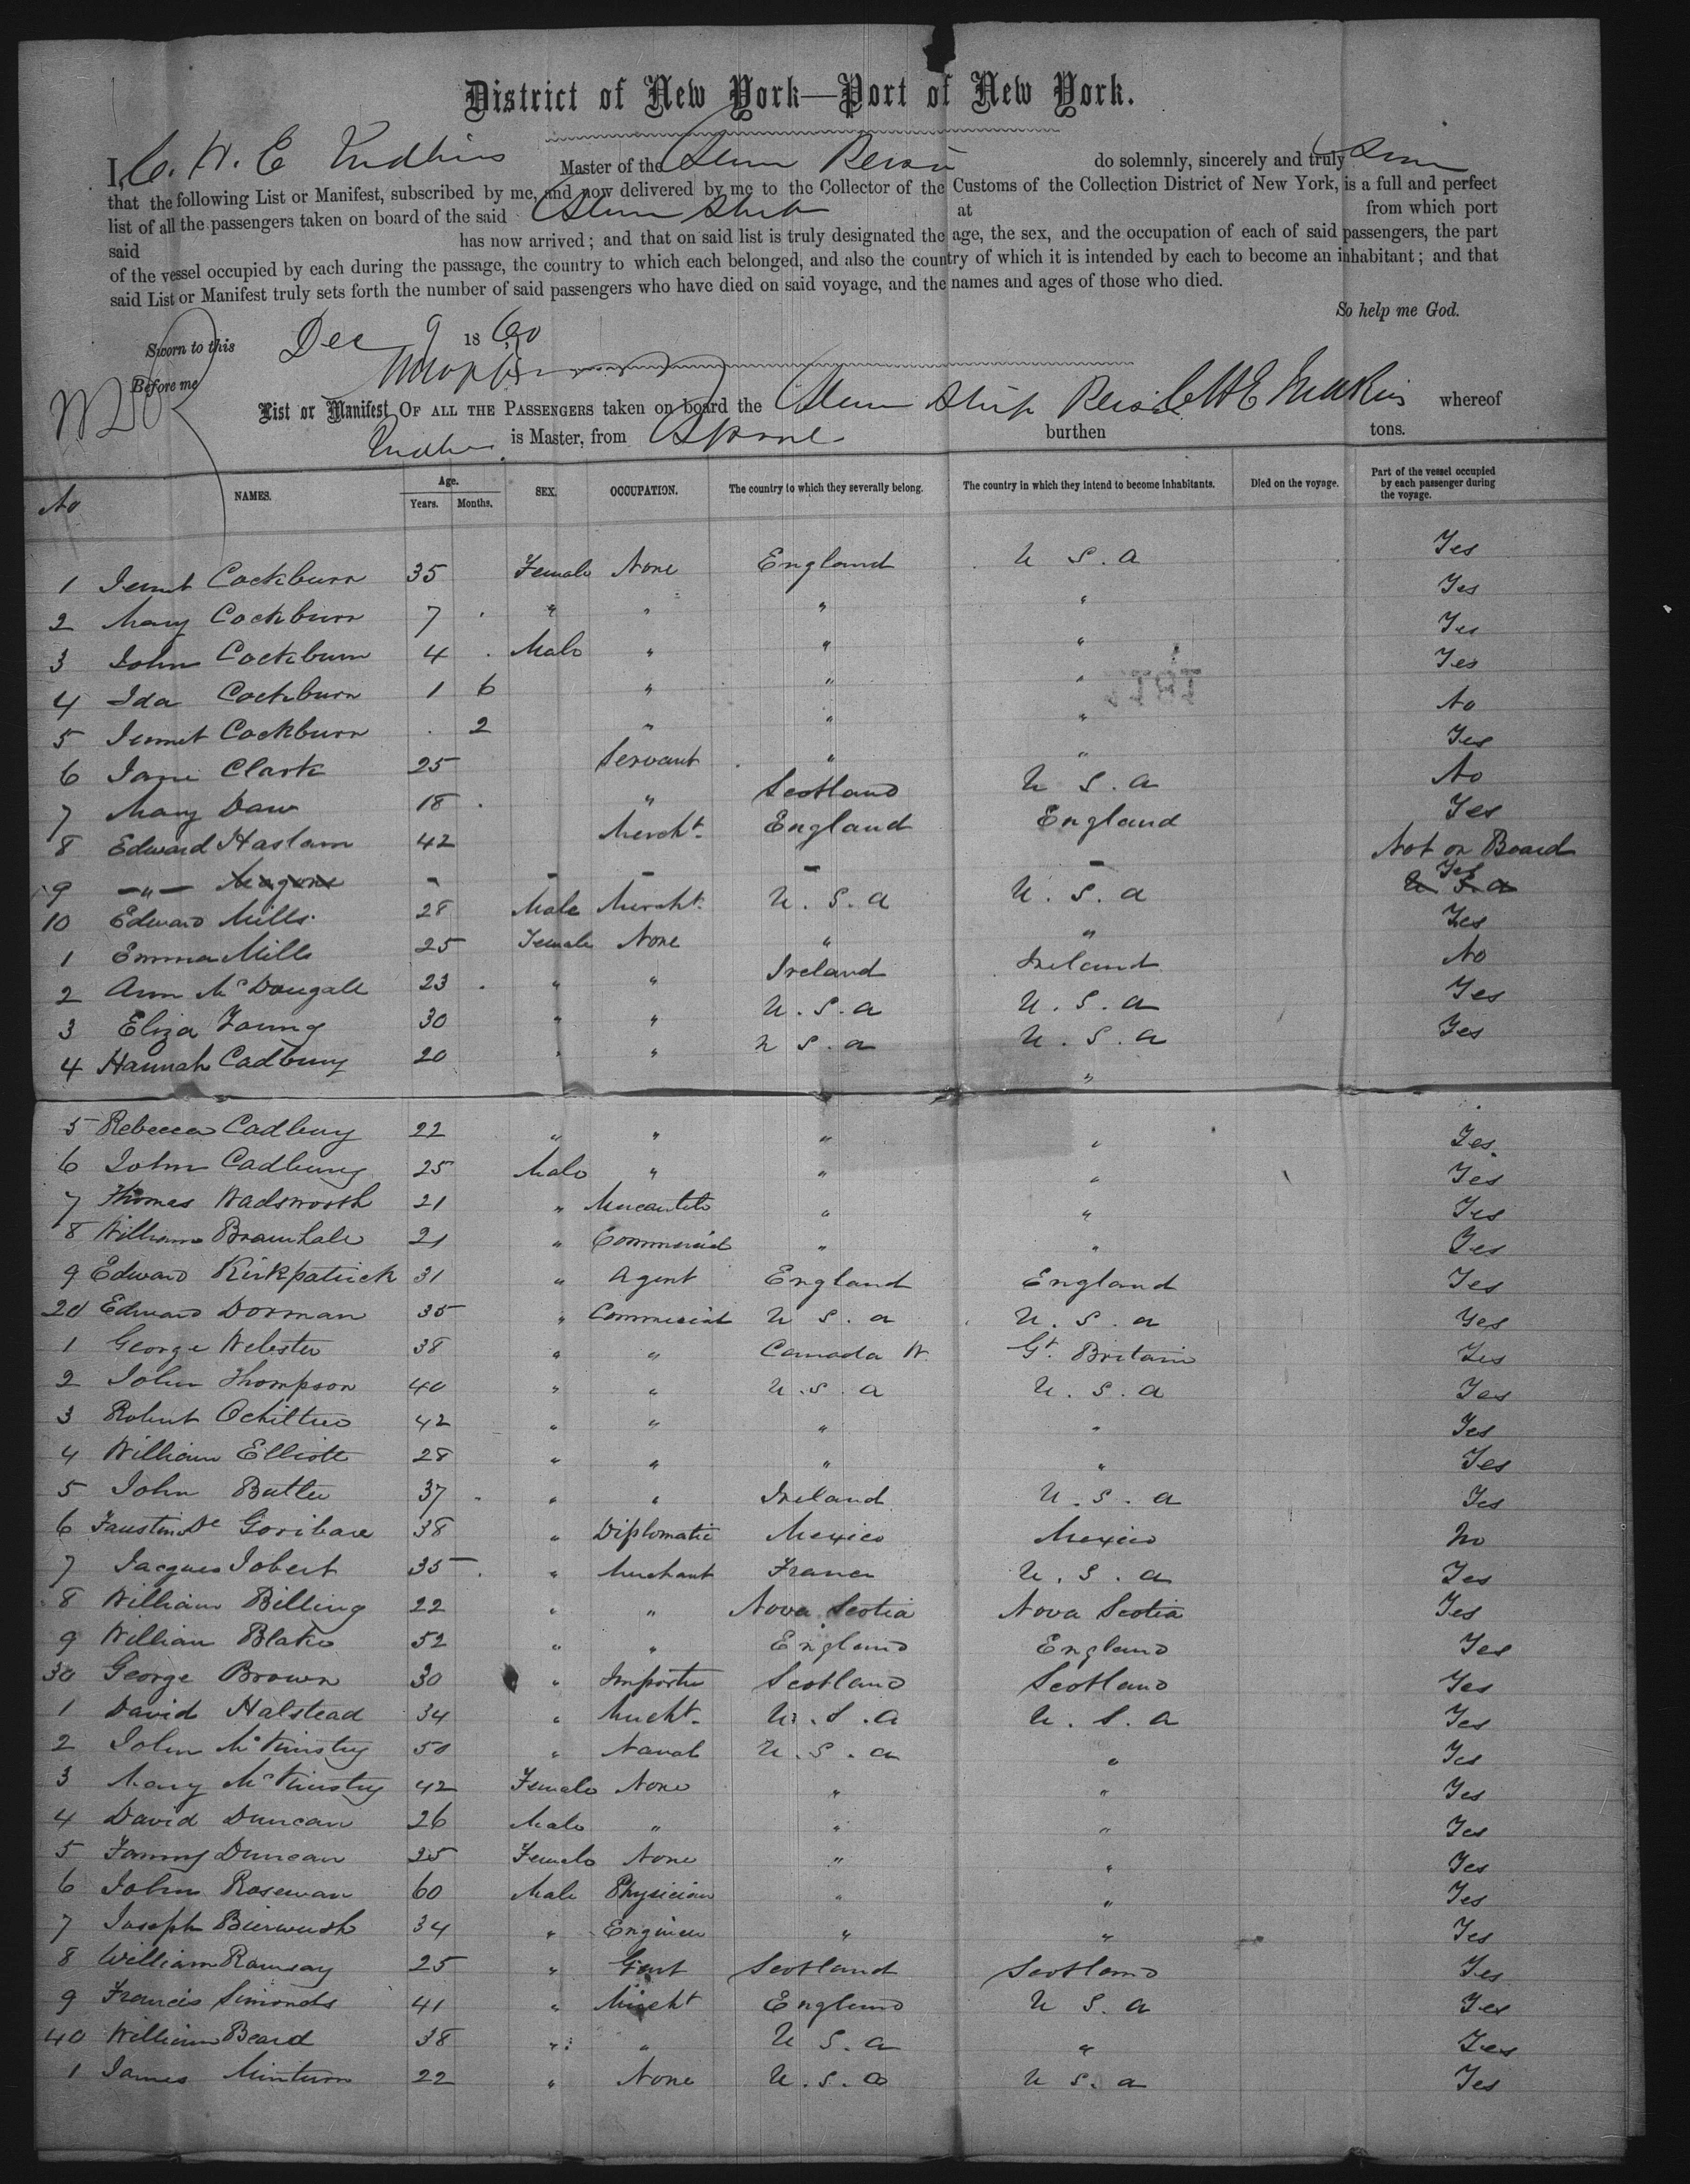 District of New York—Port of New York.
I, C. H. E Judkins Master of the Steam Persia do solemnly, sincerely and truly Swear
that the following List or Manifest, subscribed by me, and now delivered by me to the Collector of the Customs of the Collection District of New York, is a full and perfect
list of all the passengers taken on board of the said Steam Ship at from which port
said has now arrived; and that on said list is truly designated the age, the sex, and the occupation of each of said passengers, the part
of the vessel occupied by each during the passage, the country to which each belonged, and also the country of which it is intended by each to become an inhabitant; and that
said List or Manifest truly sets forth the number of said passengers who have died on said voyage, and the names and ages of those who died.
So help me God.
Sworn to this Dec 9 1860
Before me
List or Manifest OF ALL THE PASSENGERS taken on board the Steam Ship Persia CHE Judkins whereof
Judkins is Master, from Lpool burthen tons.
No NAMES. Age. Years. Months. SEX. OCCUPATION. The country to which they severally belong. The country in which they intend to become inhabitants. Died on the voyage. Part of the vessel occupied by each passenger during the voyage.
1 Cockburn 35 Female None England U S. A Yes
2 Mary Cockburn 7 " " " " Yes
3 John Cockburn 4 Male " " " Yes
4 Ida Cockburn 1 6 " " " Yes
5 Cockburn 2 " " " No
6 Jane Clark 25 Servant " " Yes
7 Mary Daw 18 " Scotland U S. A No
8 Edward Haslam 42 Mercht. England England Yes
9 —"— - - - - - Not on Board
10 Edward Mills 28 Male Mercht. U. S. A U. S. A U S. A Yes
1 Emma Mills 25 Female None " " Yes
2 Ann McDougall 23 " " Ireland Ireland No
3 Eliza Young 30 " " U. S. A U. S. A Yes
4 Hannah Cadbury 20 " " U S. A U. S. A Yes
5 Rebecca Cadbury 22 " " " " Yes
6 John Cadbury 25 Male " " " Yes
7 Thomas Wadsworth 21 " Mercantile " " Yes
8 William Bramhale 21 " Commercial " " Yes
9 Edward Kirkpatrick 31 " Agent England England Yes
20 Edward Dorman 35 " Commercial U S. A U. S. A Yes
1 George Webster 38 " " Canada W. Gt. Britain Yes
2 John Thompson 40 " " U. S. A U. S. A Yes
3 Robert Ochiltree 42 " " " " Yes
4 William Elliott 28 " " " " Yes
5 John Butler 37 " " Ireland U. S. A Yes
6 Faustin De Goribar 38 " Diplomatic Mexico Mexico No
7 Jacques Jobert 35 " Merchant France U. S. A Yes
8 William Billing 22 " " Nova Scotia Nova Scotia Yes
9 William Blake 52 " " England England Yes
30 George Brown 30 " Importer Scotland Scotland Yes
1 David Halstead 34 " Mercht. U. S. A U. S. A Yes
2 John McKinstry 50 " Naval U. S. A " Yes
3 Mary McKinstry 42 Female None " " Yes
4 David Duncan 26 Male " " " Yes
5 Fanny Duncan 25 Female None " " Yes
6 John Roseman 60 Male Physician " " Yes
7 Joseph 34 " Engineer " " Yes
8 William Ramsay 25 " Gent Scotland Scotland Yes
9 Francis Simonds 41 " Mercht England U S. A Yes
40 William Beard 38 " " U S. A " Yes
1 James Minturn 22 " None U. S. A U S. A Yes